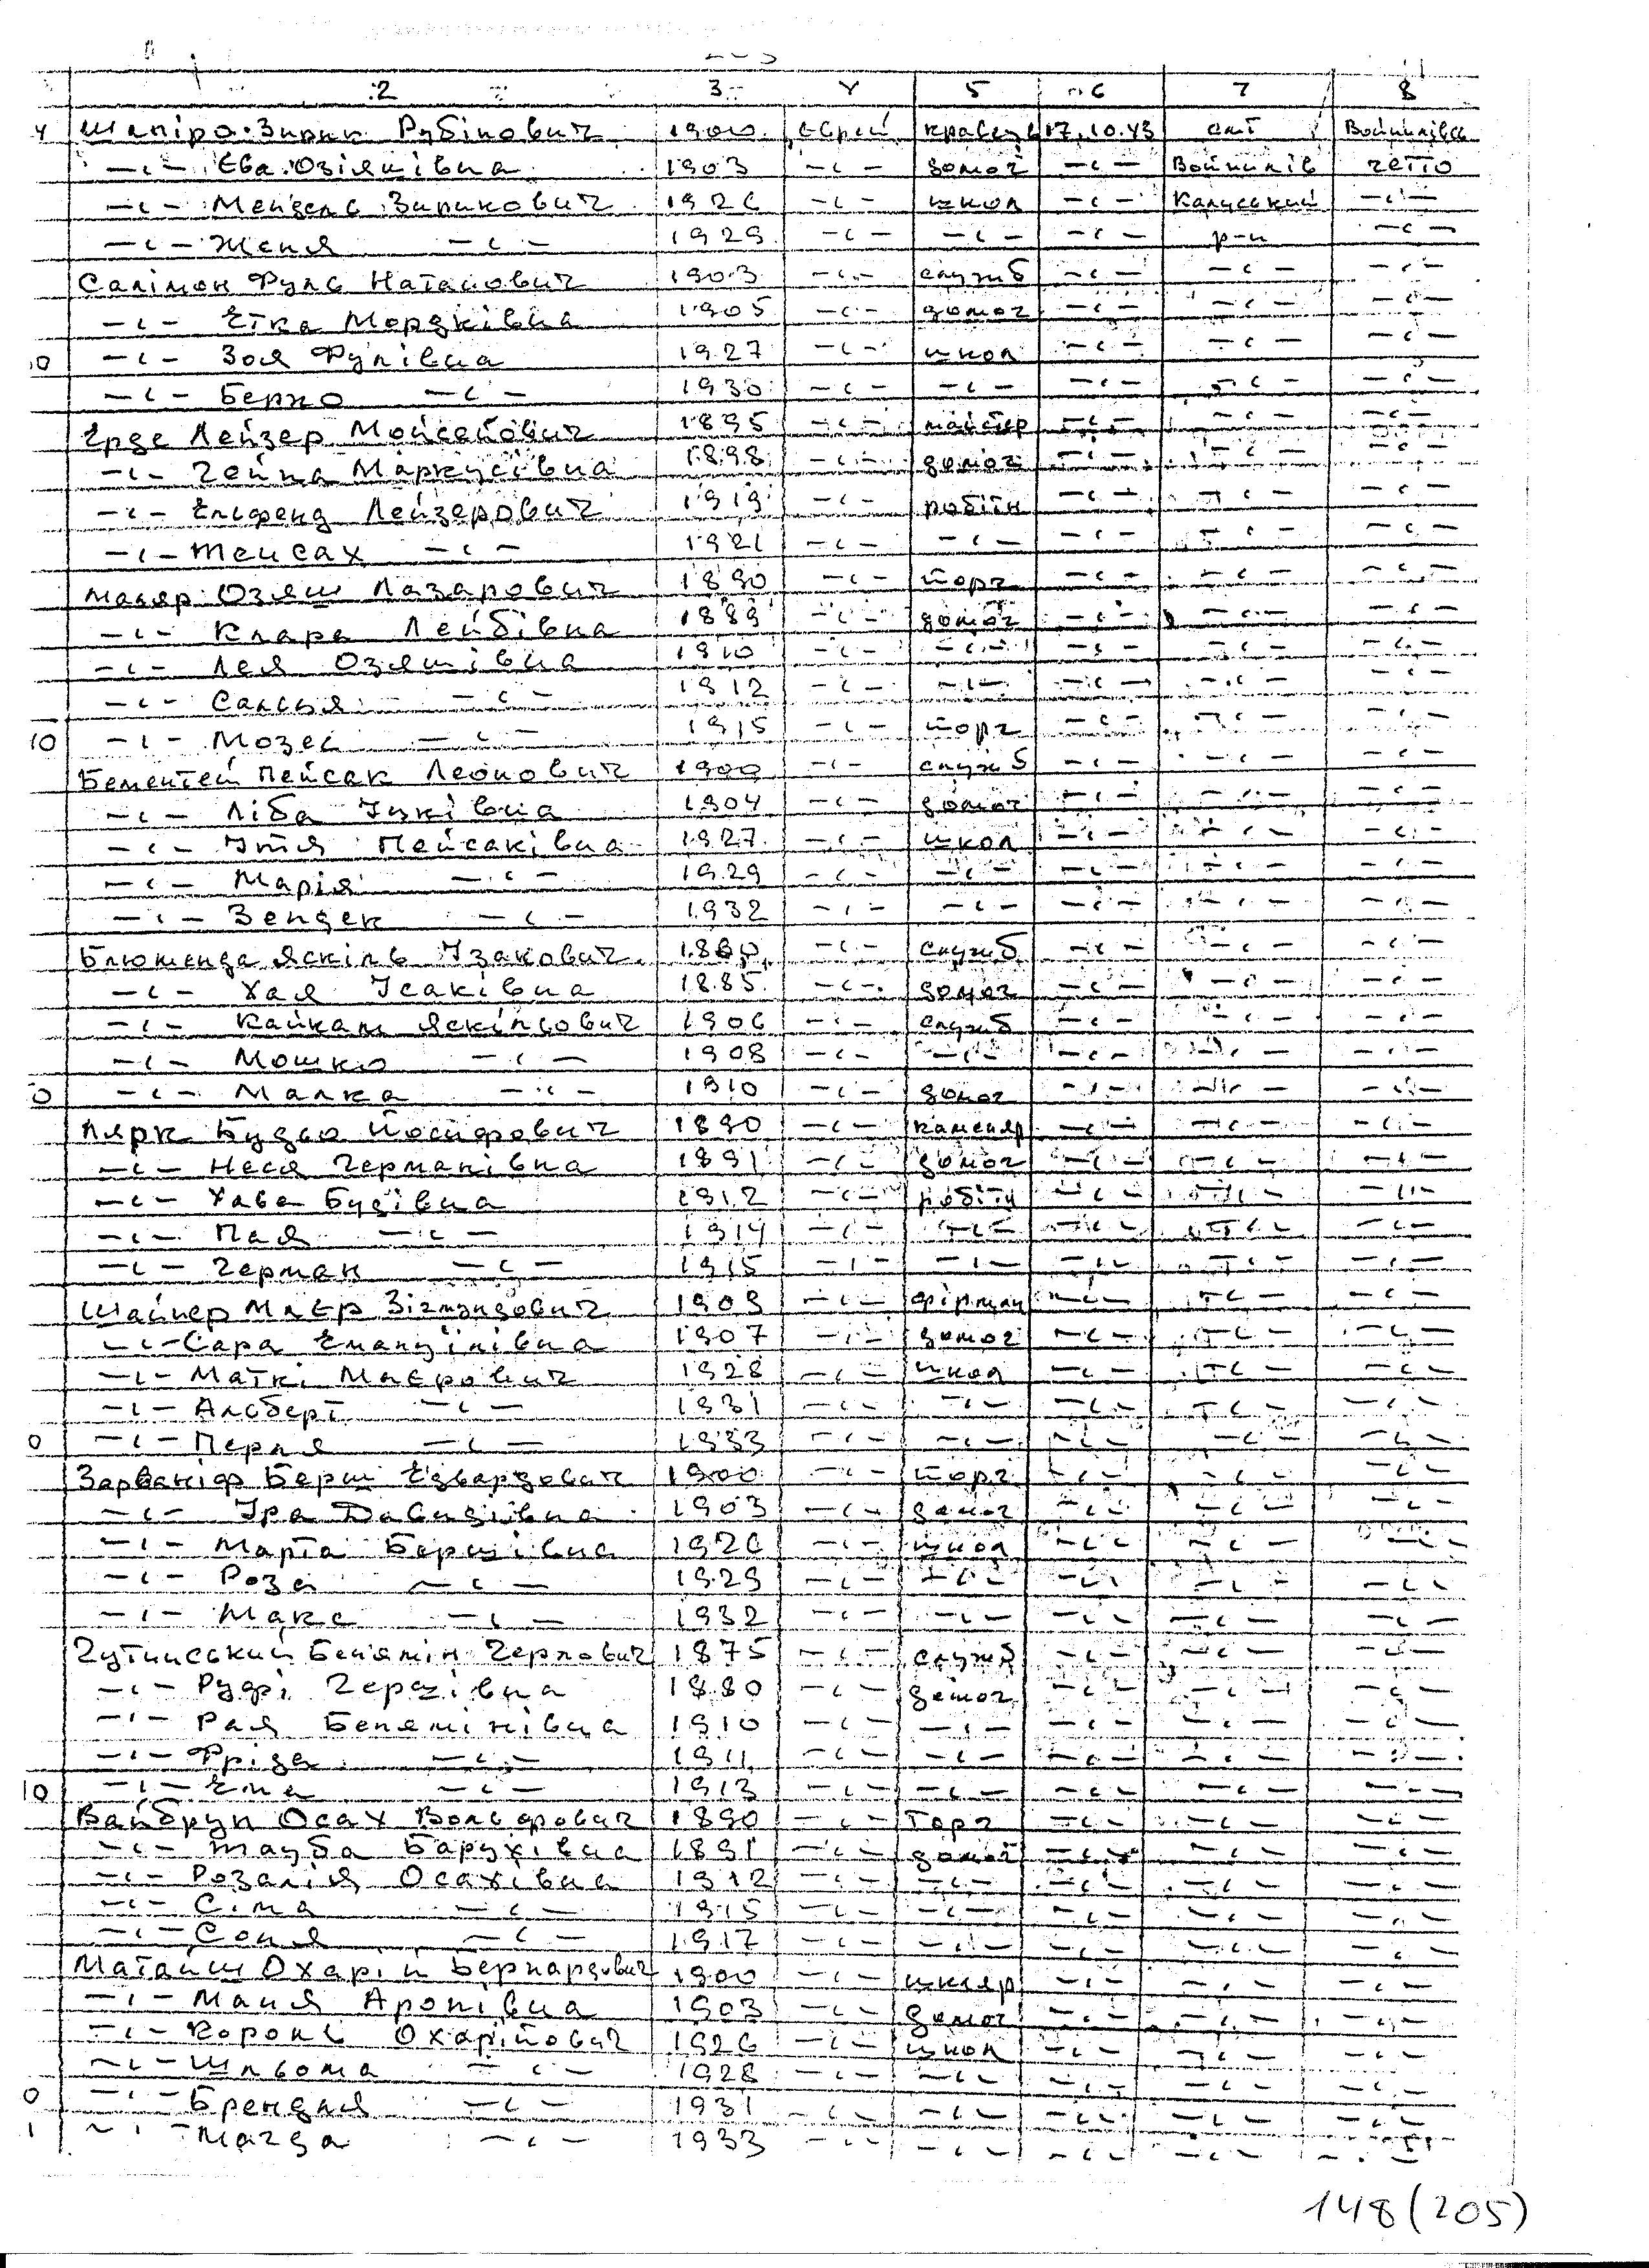 2 3 4 5 6 7 8
4 Шапіро Зирик Рубінович 1900 Єврей кравець 17.10.43 смт Войнилівсь
—„— Єва Озіяшівна 1903 —„— домог —„— Войнилів гетто
—„— Мендель Зирикович 1926 —„— школ —„— Калуський —„—
—„— Женя —„— 1929 —„— —„— —„— р-н —„—
Салімон Фуль Натанович 1903 —„— служб —„— —„— —„—
—„— Етка Мордківна 1905 —„— домог —„— —„— —„—
0 —„— Зоя Фулівна 1927 —„— школ —„— —„— —„—
—„— Берко —„— 1930 —„— —„— —„— —„— —„—
Ерде Лейзер Мойсейович 1895 —„— майстер —„— —„— —„—
—„— Гейна Маркусівна 1898 —„— домог —„— —„— —„—
—„— Ельфенд Лейзерович 1919 —„— робітн —„— —„— —„—
—„— Мейсах —„— 1921 —„— —„— —„— —„— —„—
Маляр Озяш Лазарович 1890 —„— торг —„— —„— —„—
—„— Клара Лейбівна 1889 —„— домог —„— —„— —„—
—„— Лея Озяшівна 1910 —„— —„— —„— —„— —„—
—„— Сальця —„— 1912 —„— —„— —„— —„— —„—
10 —„— Мозес —„— 1915 —„— торг —„— —„— —„—
Бементей Пейсак Леонович 1900 —„— служб —„— —„— —„—
—„— Ліба Іцківна 1904 —„— домог —„— —„— —„—
—„— Ітя Пейсаківна 1927 —„— школ —„— —„— —„—
—„— Марія —„— 1929 —„— —„— —„— —„— —„—
—„— Зендек —„— 1932 —„— —„— —„— —„— —„—
Блюменда Яскіль Ізакович 1880 —„— служб —„— —„— —„—
—„— Хая Ісаківна 1885 —„— домог —„— —„— —„—
—„— Кайкам Яскільович 1906 —„— служб —„— —„— —„—
—„— Мошко —„— 1908 —„— —„— —„— —„— —„—
0 —„— Малка —„— 1910 —„— домог —„— —„— —„—
Лярк Будьо Йосифович 1890 —„— каменяр —„— —„— —„—
—„— Неся Германівна 1891 —„— домог —„— —„— —„—
—„— Хава Будівна 1912 —„— робітн —„— —„— —„—
—„— Пая —„— 1914 —„— —„— —„— —„— —„—
—„— Герман —„— 1915 —„— —„— —„— —„— —„—
Шайнер Маєр Зігмундович 1903 —„— фірман —„— —„— —„—
—„— Сара Емануїлівна 1907 —„— домог —„— —„— —„—
—„— Маткі Маєрович 1928 —„— школ —„— —„— —„—
—„— Альберт —„— 1931 —„— —„— —„— —„— —„—
0 —„— Перля —„— 1933 —„— —„— —„— —„— —„—
Зарваніф Берш Едвардович 1900 —„— торг —„— —„— —„—
—„— Іра Давидівна 1903 —„— домог —„— —„— —„—
—„— Марта Бершівна 1926 —„— школ —„— —„— —„—
—„— Роза —„— 1929 —„— —„— —„— —„— —„—
—„— Макс —„— 1932 —„— —„— —„— —„— —„—
Гутинський Бенямін Герлович 1875 —„— служб —„— —„— —„—
—„— Руфі Гершівна 1880 —„— домог —„— —„— —„—
—„— Рая Бенямінівна 1910 —„— —„— —„— —„— —„—
—„— Фріда —„— 1911 —„— —„— —„— —„— —„—
10 —„— Ема —„— 1913 —„— —„— —„— —„— —„—
Вайбрун Осах Вольфович 1890 —„— торг —„— —„— —„—
—„— Тауба Барухівна 1891 —„— домог —„— —„— —„—
—„— Розалія Осахівна 1912 —„— —„— —„— —„— —„—
—„— Сіма —„— 1915 —„— —„— —„— —„— —„—
—„— Соня —„— 1917 —„— —„— —„— —„— —„—
Матайш Охарій Бернардович 1900 —„— шкляр —„— —„— —„—
—„— Маня Аронівна 1903 —„— домог —„— —„— —„—
—„— Коронь Охарійович 1926 —„— школ —„— —„— —„—
—„— Шльома —„— 1928 —„— —„— —„— —„— —„—
0 —„— Брендля —„— 1931 —„— —„— —„— —„— —„—
1 —„— Магда —„— 1933 —„— —„— —„— —„— —„—
148 (205)